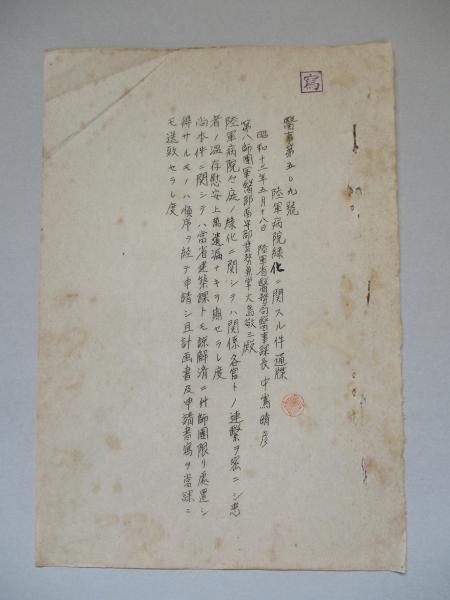 寫
醫事第五〇九號
陸軍病院緑化ニ関スル件通牒
昭和十三年五月十八日 陸軍省醫務局醫事課長 中嶌晴彦
第八師團軍醫部高等部業務兼掌大高敬三殿
陸軍病院 庭ノ緑化ニ関シテハ関係各官トノ連繋ヲ密ニシ患
者ノ温存慰安上萬遺漏ナキヲ期セラレ度
尚本件ニ関シテハ當省建築課トモ諒解済ニ付師團限リ處置シ
得サルモノハ順序ヲ経テ申請シ且計画書及申請書寫ヲ當課ニ
モ送致セラレ度